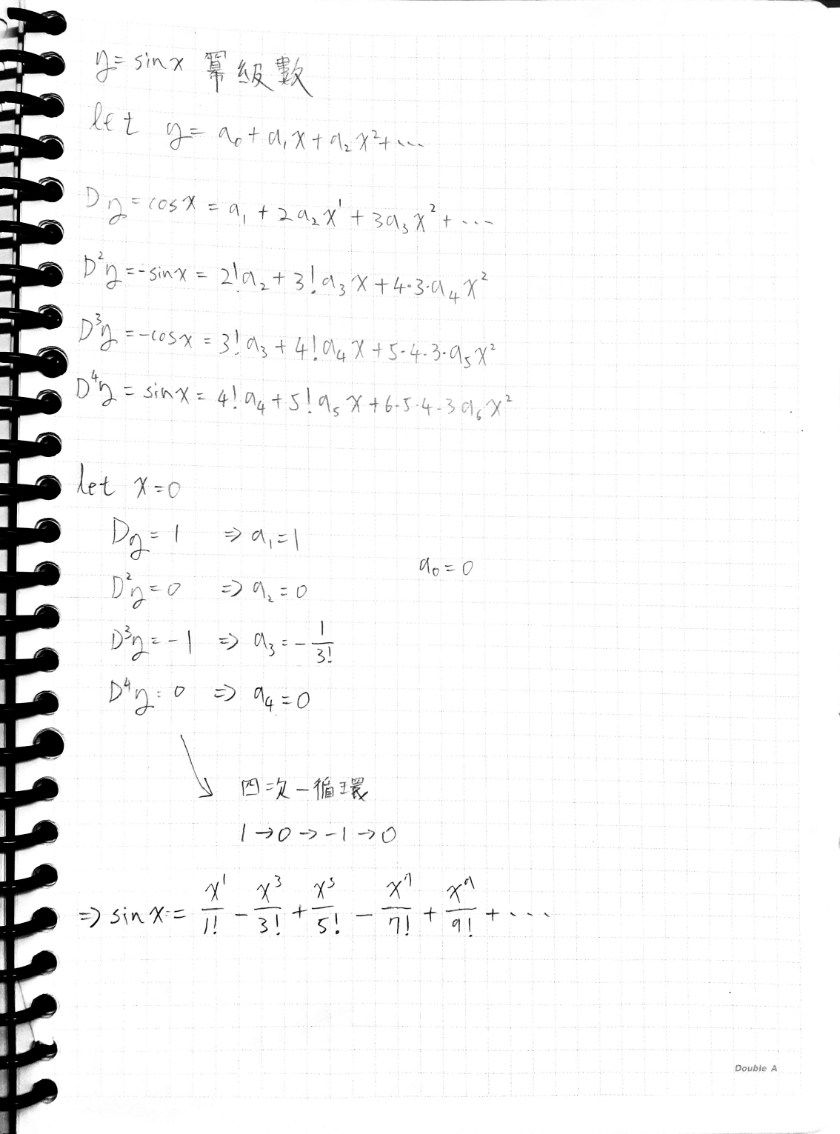 y = sinx 冪級數
let y = a₀ + a₁x + a₂x² + ⋯
Dy = cosx = a₁ + 2a₂x¹ + 3a₃x² + ⋯
D²y = -sinx = 2!a₂ + 3!a₃x + 4·3·a₄x²
D³y = -cosx = 3!a₃ + 4!a₄x + 5·4·3·a₅x²
D⁴y = sinx = 4!a₄ + 5!a₅x + 6·5·4·3a₆x²
let x = 0
Dy = 1 ⇒ a₁ = 1
a₀ = 0
D²y = 0 ⇒ a₂ = 0
D³y = -1 ⇒ a₃ = -1/3!
D⁴y = 0 ⇒ a₄ = 0
四次一循環
1 → 0 → -1 → 0
⇒ sinx = x¹/1! - x³/3! + x⁵/5! - x⁷/7! + x⁹/9! + ⋯
Double A